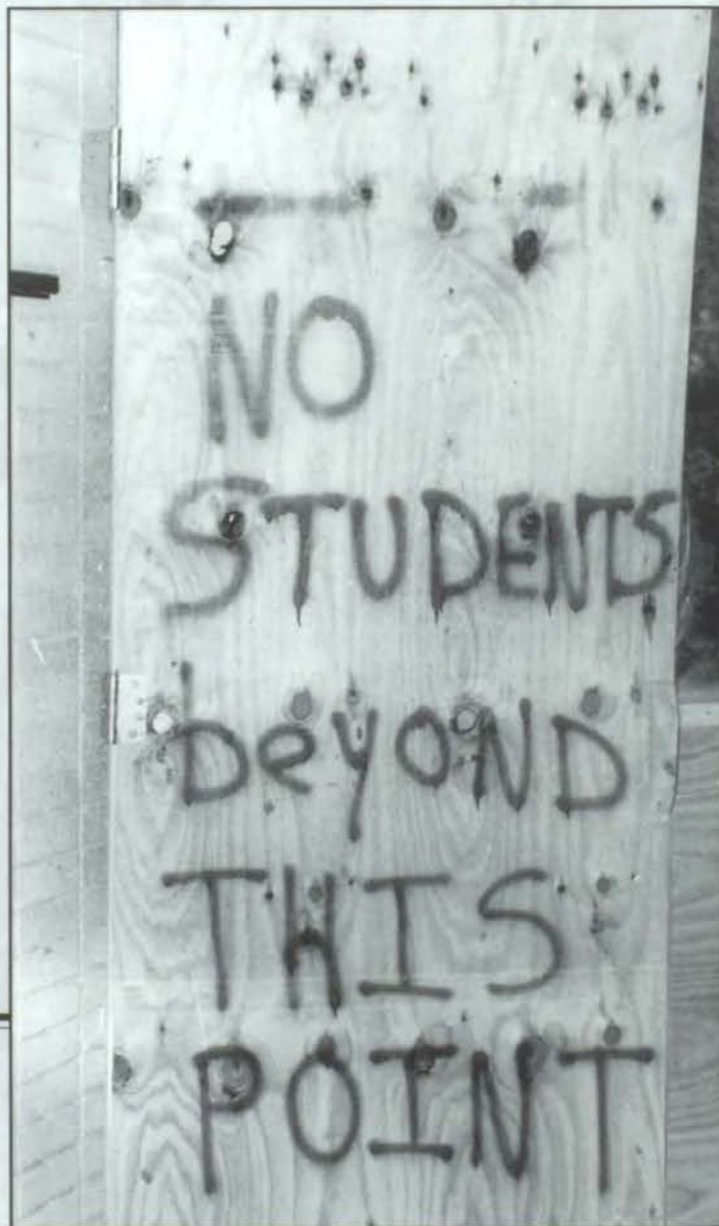 NO
STUDENTS
beyOND
THIS
POINT